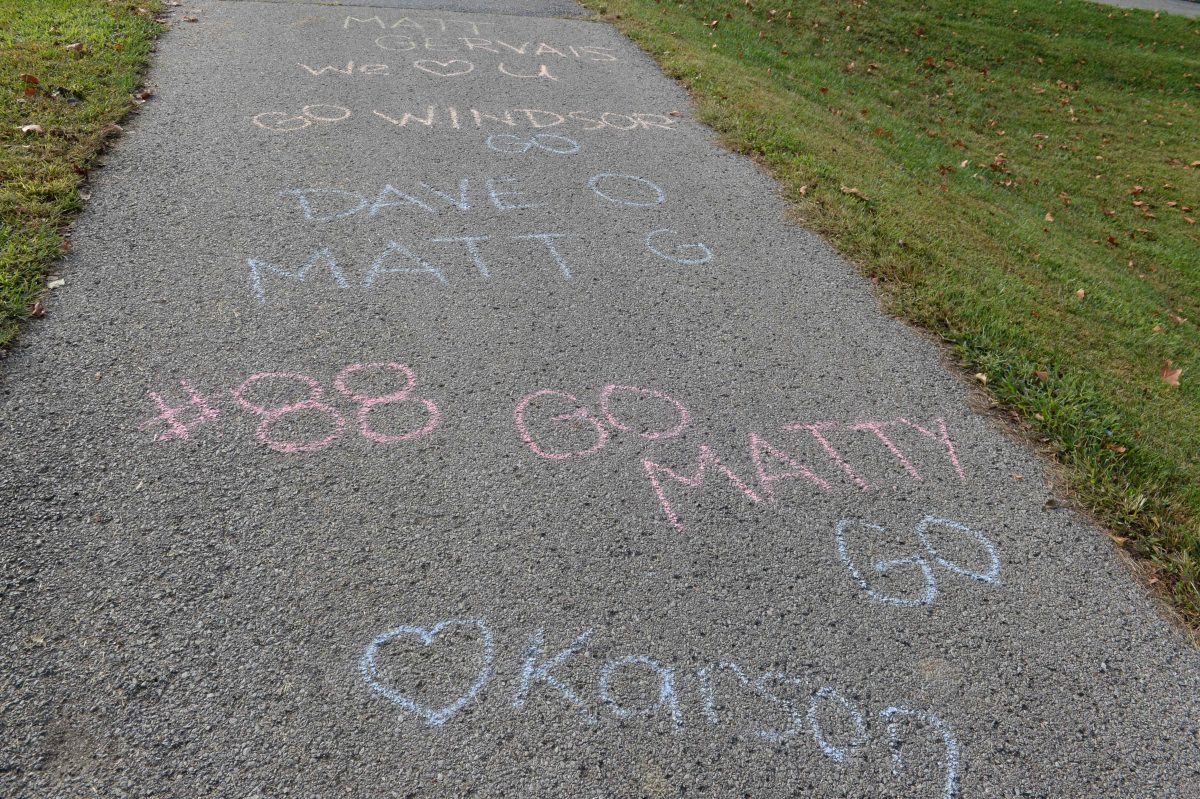 MATT
GERVAIS
We ♡ u
GO WINDSOR
GO
DAVE O
MATT G
#88 GO
MATTY
GO
♡ Karson